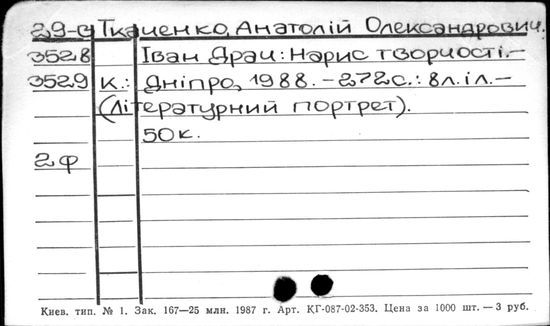 29-в Ткаченко, Анатолій Олександрович.
3528 Іван Драч: Нарис творчості.—
3529 К.: Дніпро, 1988.—272с.: 8л.іл.—
(Літературний портрет).
50к.
2ф
Киев. тип. № 1. Зак. 167—25 млн. 1987 г. Арт. КГ-087-02-353. Цена за 1000 шт. — 3 руб.